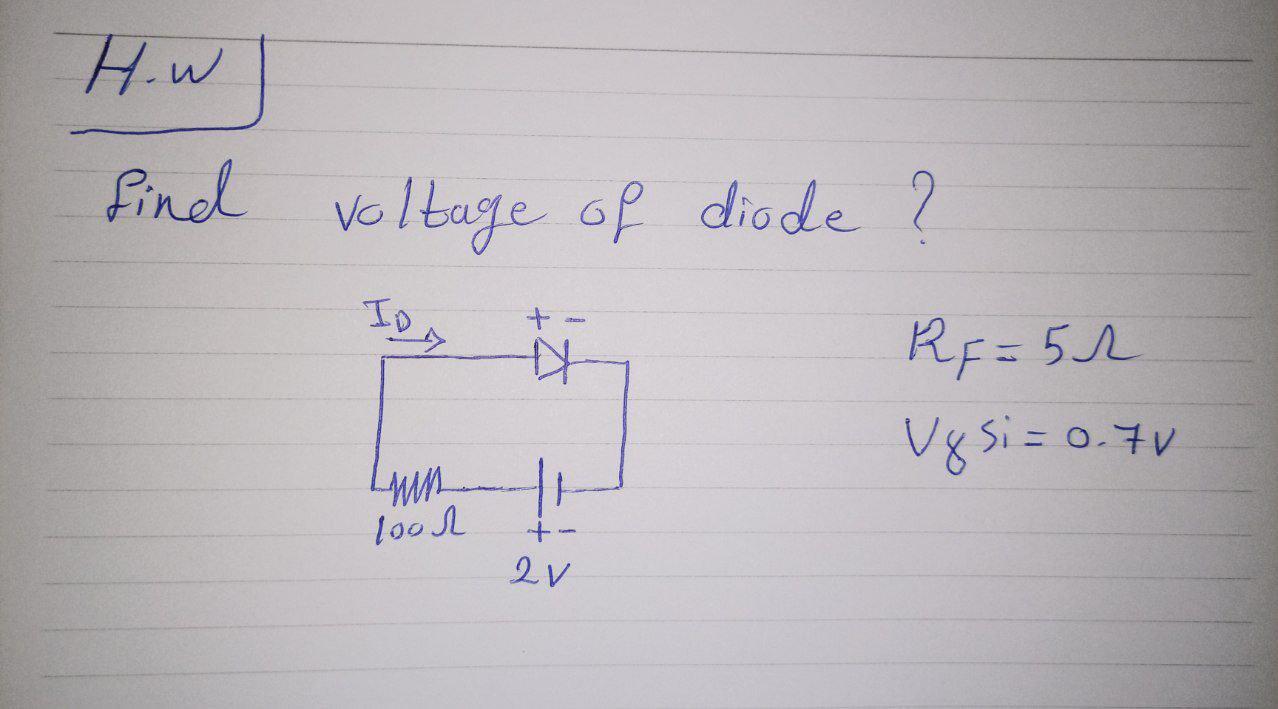 H.W
find voltage of diode ?
I_D
+ -
R_F = 5Ω
Vγ Si = 0.7v
100Ω
+ -
2V